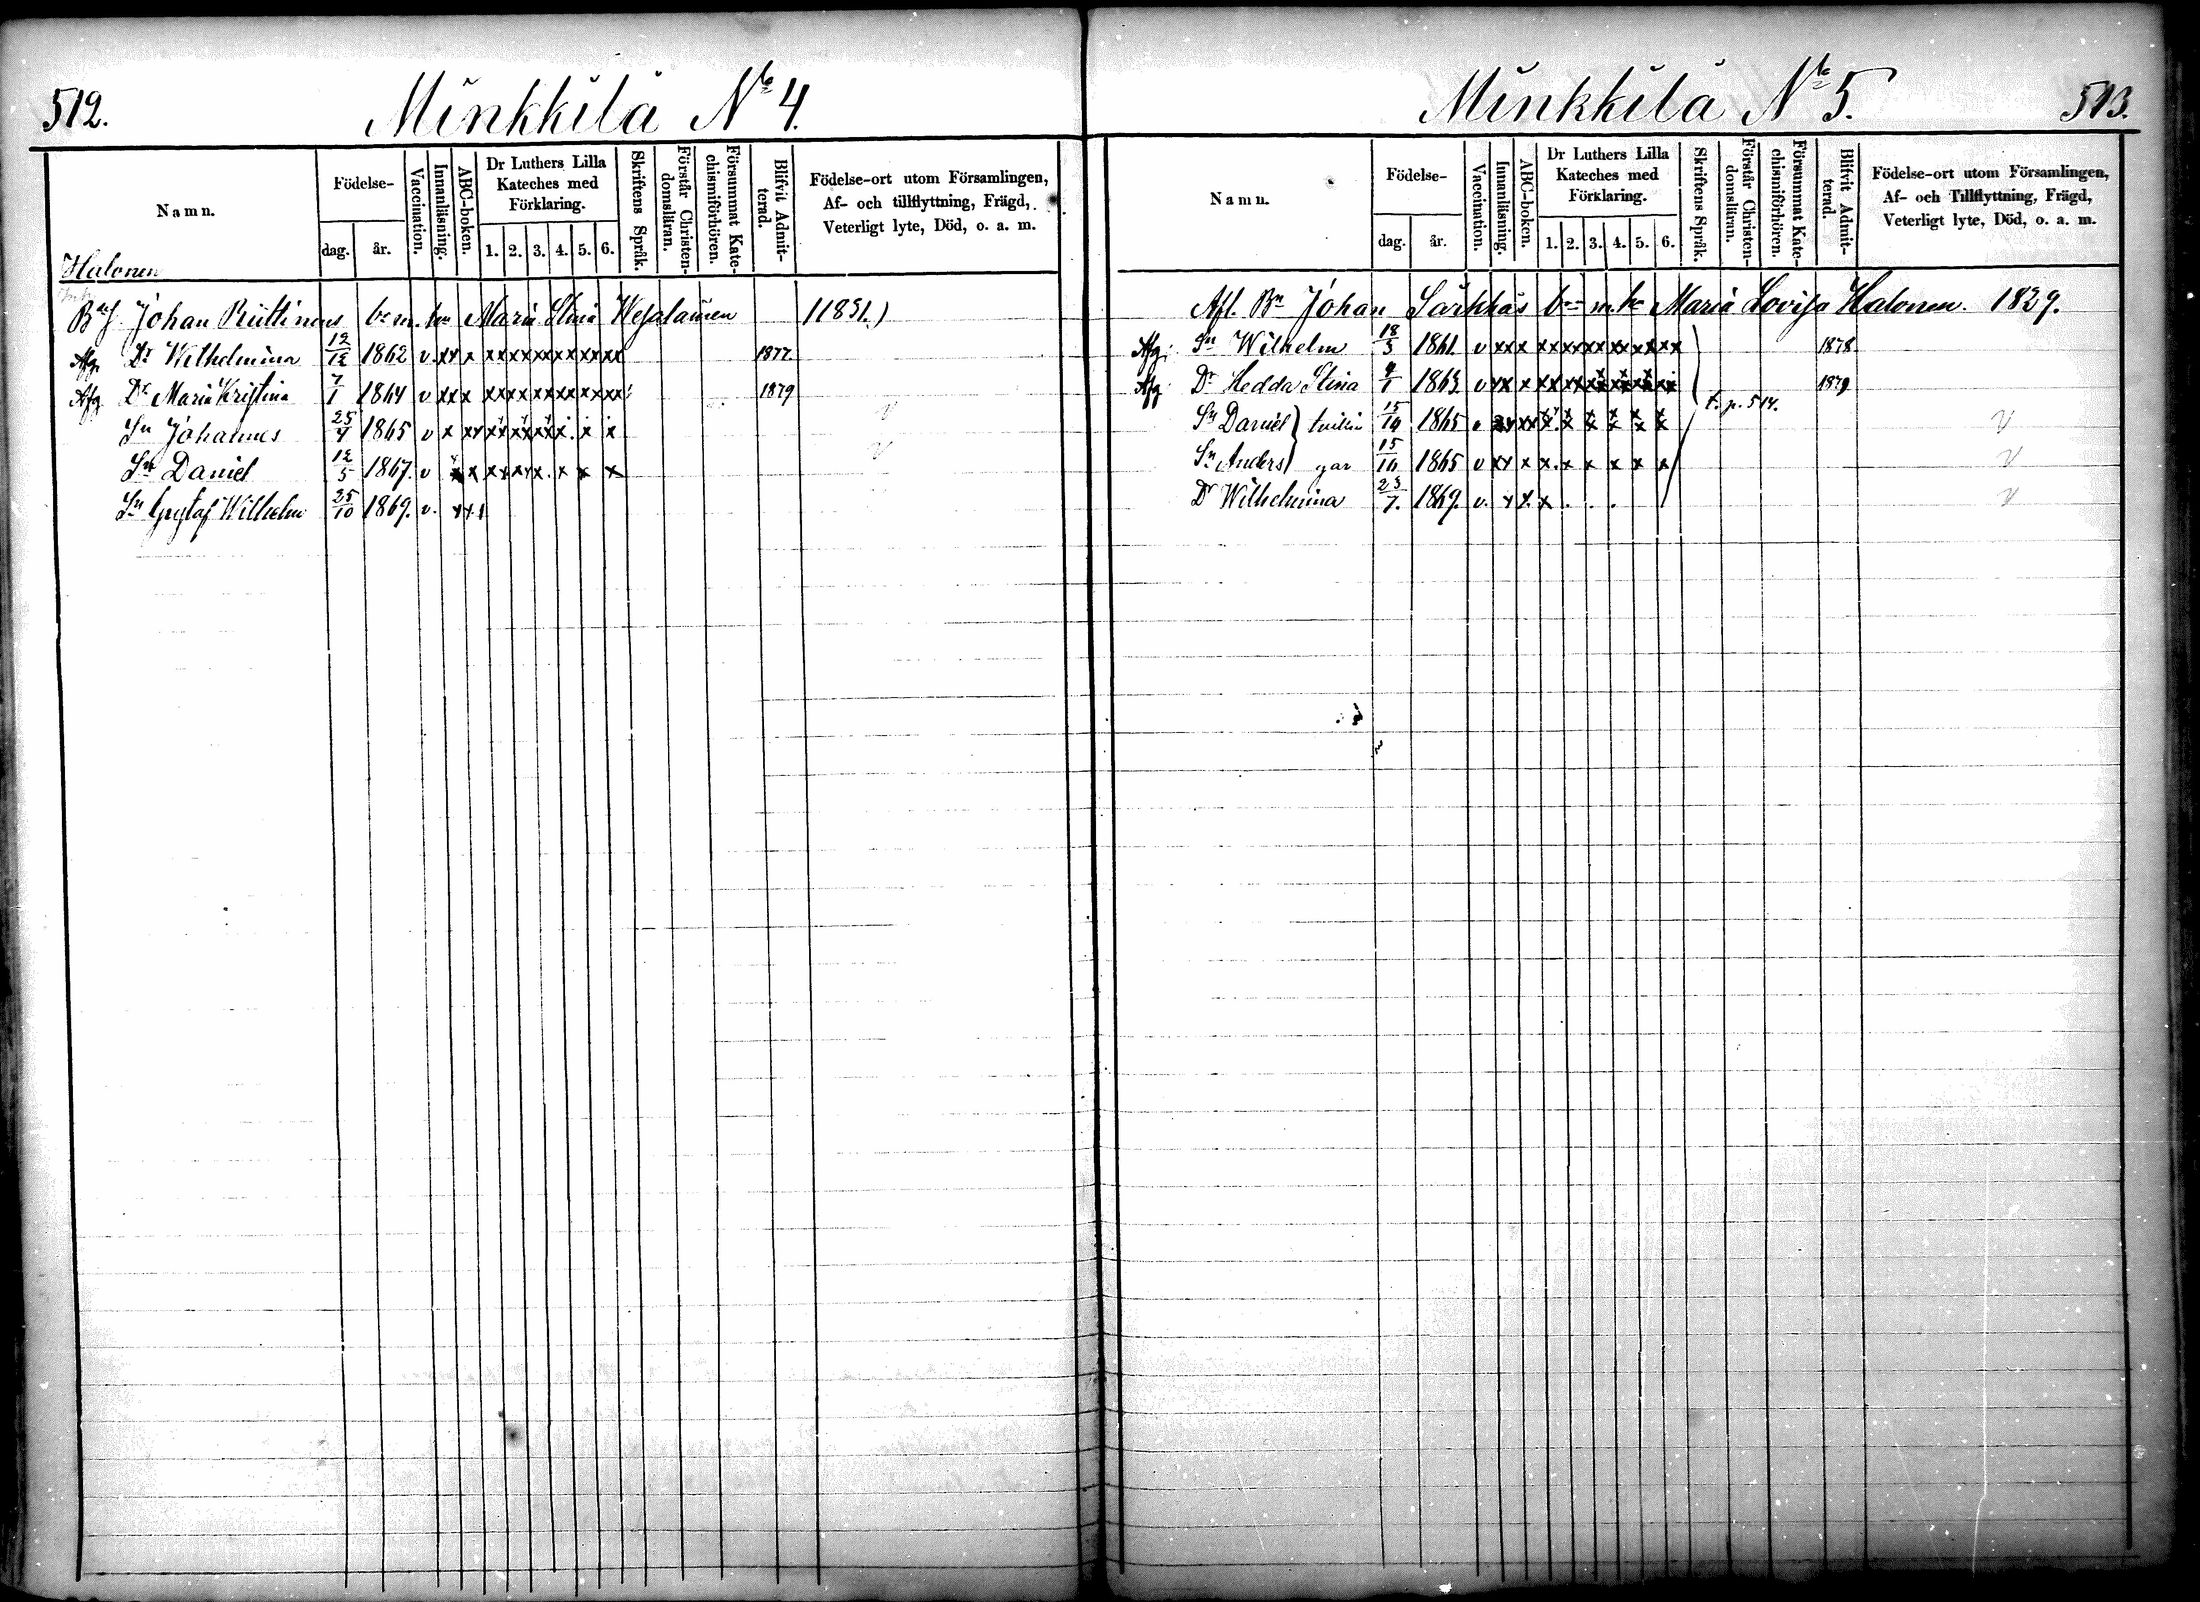 512.
Minkkilä No 4.
Namn.
Födelse-
dag.
år.
Vaccination.
Innanläsning.
ABC-boken.
Dr Luthers Lilla
Kateches med
Förklaring.
1. 2. 3. 4. 5. 6.
Skriftens Språk.
Förstår Christen-
domsläran.
Försummat Kate-
chismiförhören.
Blifvit Admit-
terad.
Födelse-ort utom Församlingen,
Af- och tillflyttning, Frägd,
Veterligt lyte, Död, o. a. m.
Halonen
Johan Riittinens barn m. hu Maria Stina Wesalainen 1831.)
Afg. Dr Wilhelmina 12/12 1862 v xx x xx xx xx xx xx xx 1877.
Afg Dr Maria Kristina 7/1 1864 v xx x xx xx xx xx xx xx 1879
Sn Johannes 25/4 1865 v x xx xx xx xx x x x
Sn Daniel 12/5 1867. v x x x xx xx x. x x x
Sn Gustaf Wilhelm 25/10 1869. v. x x
Minkkilä No 5.
513.
Namn.
Födelse-
dag.
år.
Vaccination.
Innanläsning.
ABC-boken.
Dr Luthers Lilla
Kateches med
Förklaring.
1. 2. 3. 4. 5. 6.
Skriftens Språk.
Förstår Christen-
domsläran.
Försummat Kate-
chismiförhören.
Blifvit Admit-
terad.
Födelse-ort utom Församlingen,
Af- och Tillflyttning, Frägd,
Veterligt lyte, Död, o. a. m.
Afl. Bn Johan Särkkäs bn m. he Maria Lovisa Halonen. 1829.
Afg. Sn Wilhelm 18/5 1861. v xx x xx xx xx xx xx xx 1878
Afg. Dr Hedda Stina 1863. v xx x xx xx xx xx xx 1879
t. p. 514.
Sn Daniel } tvillin 1865 v xx xx x x x x x
Sn Anders } gar 1865 v xx x x. x x x x x
Dr Wilhelmina 23/7. 1869. v. x x. x . . .